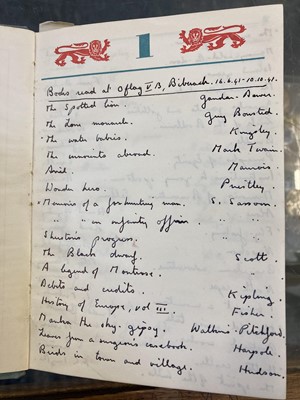 1
Books read at Oflag V B, Biberach. 16.6.41-10.10.41.
The Spotted lion. Gandar-Dower.
The lone monarch. Guy Bousted.
The water babies. Kingsley.
The innocents abroad. Mark Twain.
Ariel. Maurois.
Wonder hero. Priestley.
Memoirs of a foxhunting man. S. Sassoon.
" " an infantry officer. " "
Shorton's progress.
The Black dwarf. Scott.
A legend of Montrose. "
Debits and credits. Kipling.
History of Europe, vol III. Fisher.
Marka the sky gipsy. Watkins-Pitchford.
Leaves from a surgeon's casebook. Harpole.
Birds in town and village. Hudson.